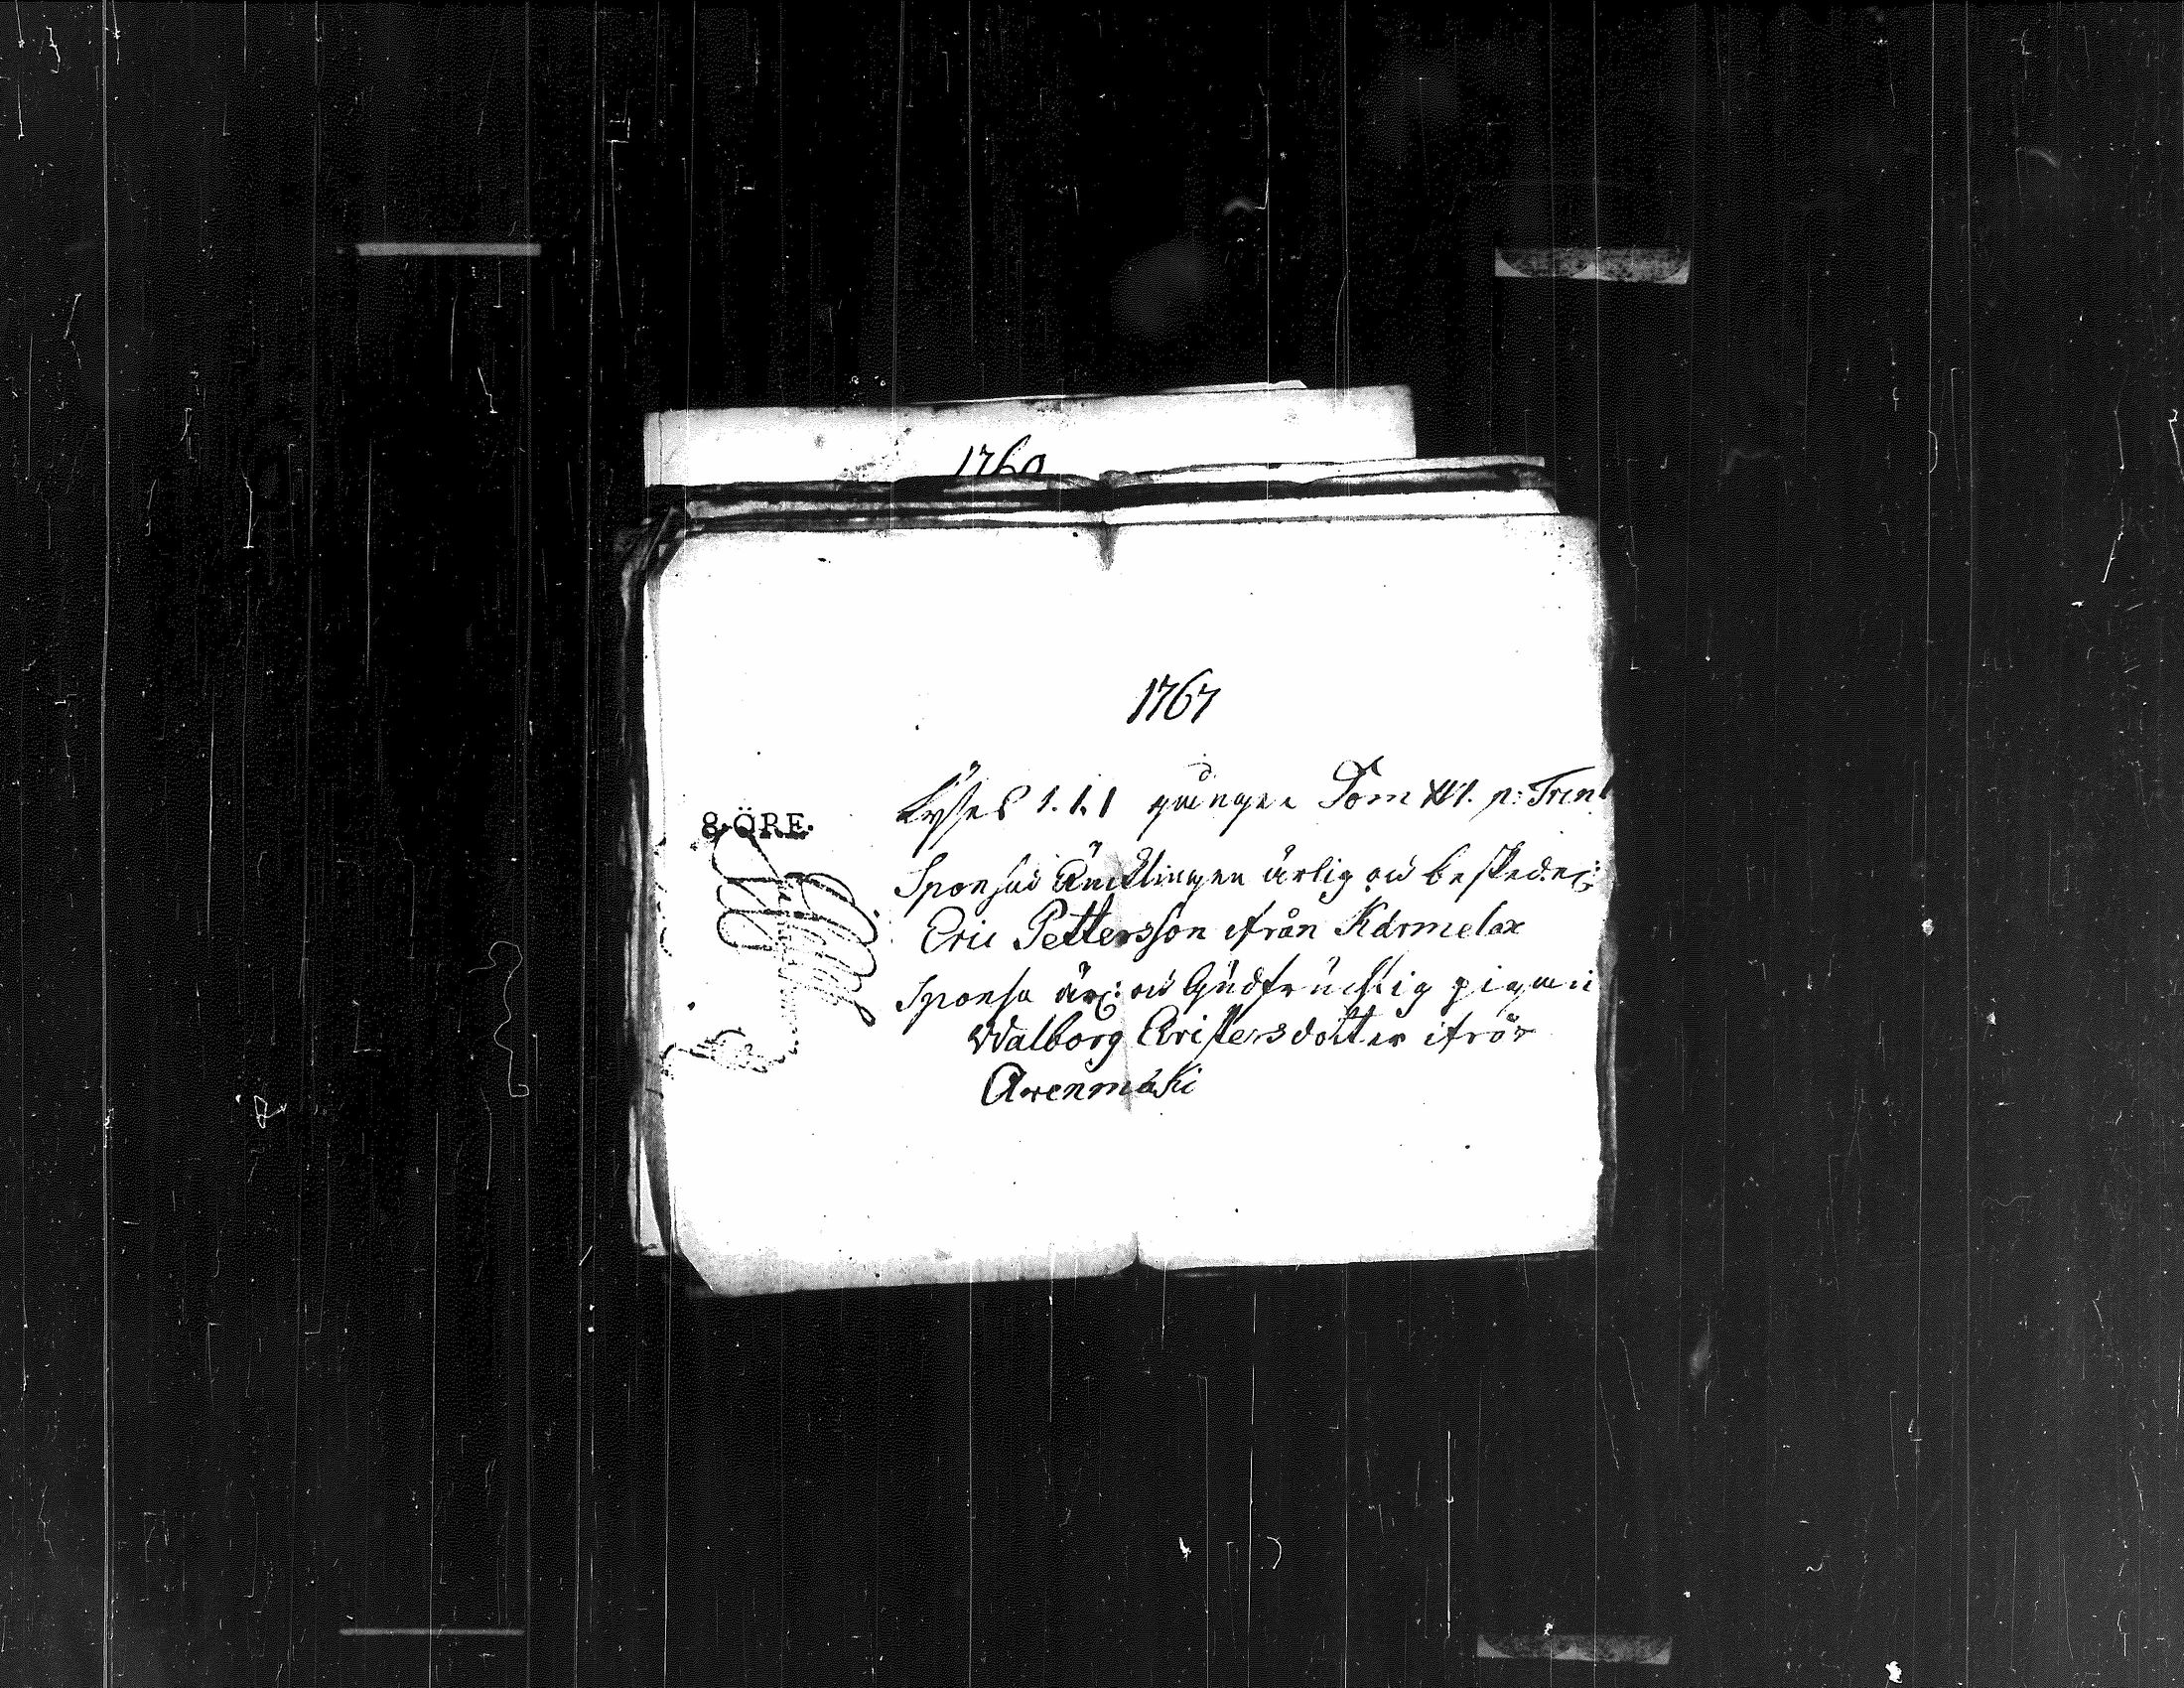 1760
1767
8 ÖRE.
Lyses 1. 1. 1 gången Dom XVI. p: Trinl
Sponsus Änklingen ärlig och beskedel:
Eric Pettersson ifrån Kärmelax
Sponsa är: och Gudfrucktig pigan
Walborg Christersdotter ifrån
Arenmäki